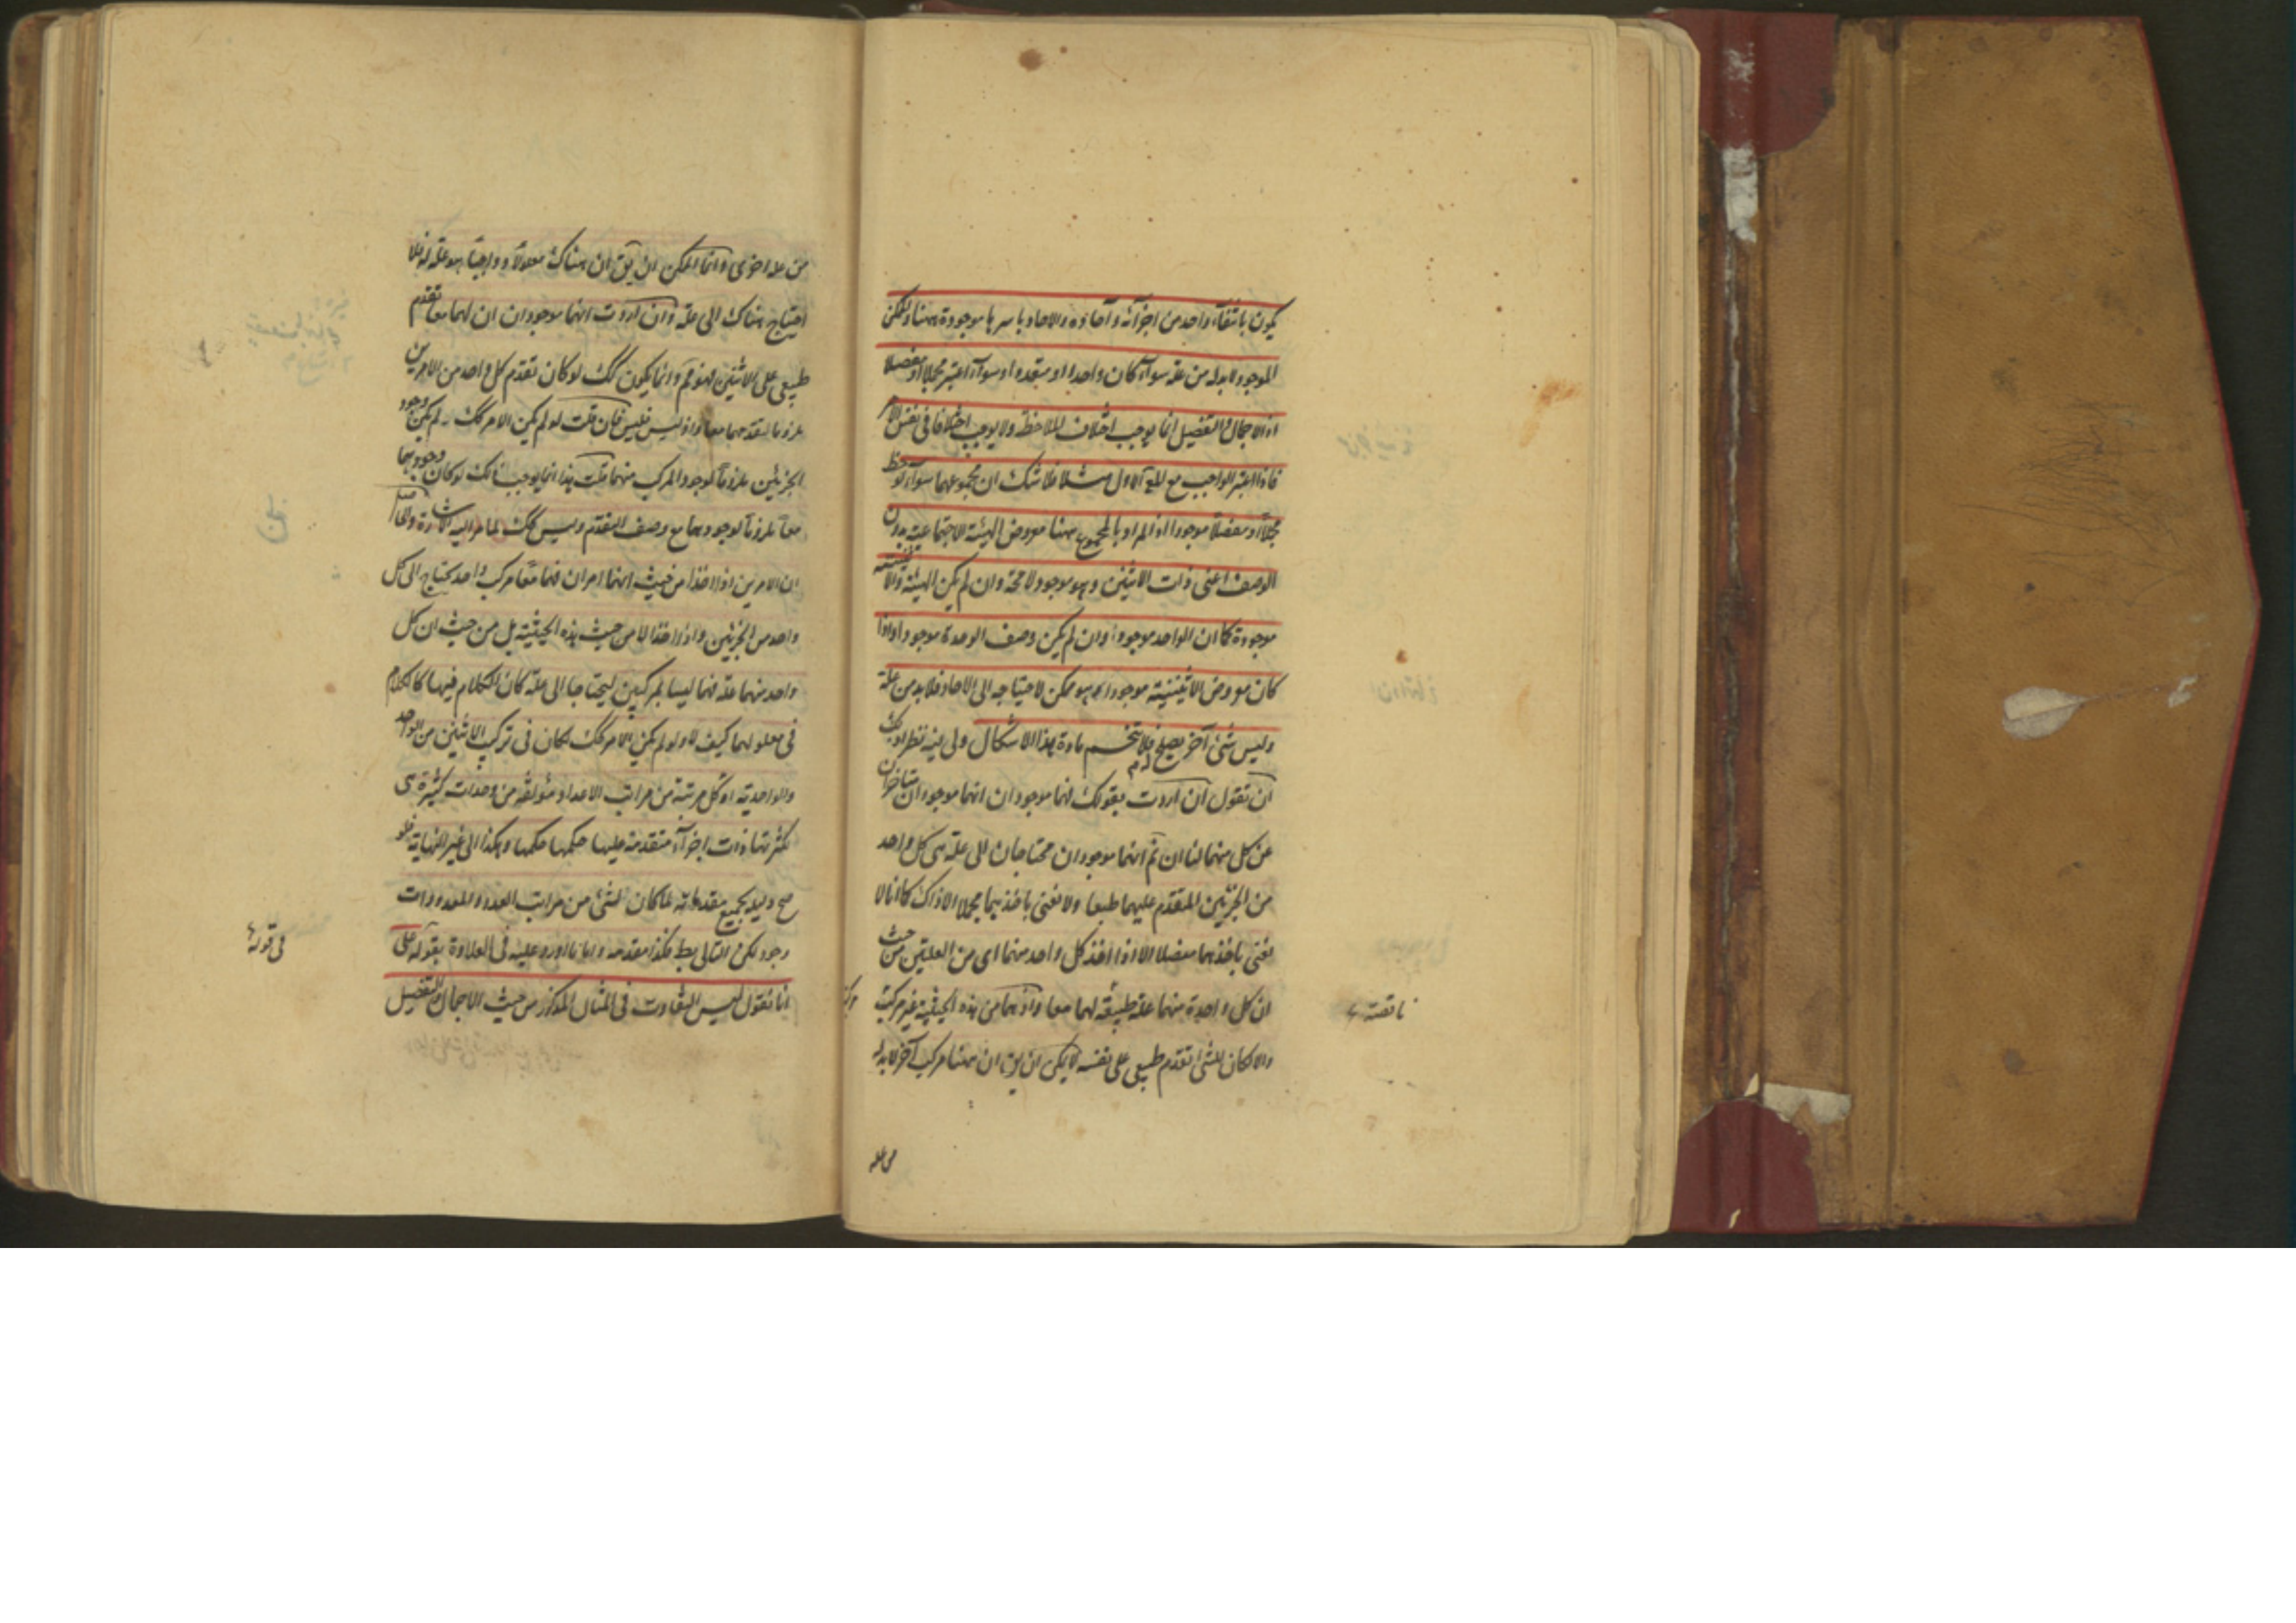 يكون بانتفاء واحد من اجزائه وآحاده والاحاد باسرها موجودة ههنا ولكن
الموجود لابد له من علة سواء كان واحدا او متعددا وسواء اعتبر مجملا او مفصلا
اذ الاجمال والتفصيل انما يوجب اختلاف الملاحظة ولا يوجب اختلافا في نفس الامر
فاذا اعتبر الواجب مع المع الاول مثلا فلا شك ان مجموعهما سواء لوحظ
مجملا او مفصلا موجود اذ المراد بالمجموع ههنا معروض الهيئة الاجتماعية بدون
الوصف اعني ذات الاثنين وهو موجود لا محة وان لم يكن الهيئة والاثنينية
موجودة كما ان الواحد موجود وان لم يكن وصف الوحدة موجودا واذا
كان معروض الاثنينية موجودا وهو ممكن لاحتياجه الى الاحاد فلابد من علة
وليس شئ آخر يصلح لها فلا تنحسم مادة هذا الاشكال ولي فيه نظر اذ لك
ان تقول ان اردت بقولك انهما موجودان انهما موجودان متأخران
عن كل منهما لنا ان ثم انهما موجودان محتاجان الى علة هي كل واحد
من الجزئين المتقدم عليهما طبعا ولا نعني باخذهما مجملا الا ذاك كما انا لا
نعني باخذهما مفصلا الا اذا اخذ كل واحد منهما اى من العلتين من حيث
ان كل واحدة منهما علة طبيعة لهما معا واذ هما من هذه الحيثية غير مركب
ناقصة
والا لكان للشئ تقدم طبيعي على نفسه لا يمكن ان يق ان ههنا مركب آخر لابد له
من علة
من علة اخرى وانما الممكن ان يق ان هناك معلولا وواجبا هو علة له فلا
احتياج هناك الى علة وان اردت انهما موجودان ان لهما معا تقدم
طبيعي على الاثنين فهو ثم وانما يكون كك لو كان تقدم كل واحد من الامرين
ملزوما لتقدمهما معا واذ ليس فليس فان قلت لو لم يكن الامر كك لم يكن وجود
الجزئين ملزوما لوجود المركب منهما قلت هذا انما يوجب ذلك لو كان وجودهما
معا ملزوما لوجودهما مع وصف التقدم وليس كك لما مر اليه الاشارة والحاصل
ان الامرين اذا اخذا من حيث انهما امران فهما معا مركب واحد يحتاج الى كل
واحد من الجزئين واذا اخذا لا من حيث هذه الحيثية بل من حيث ان كل
واحد منهما علة فهما ليسا بمركبين ليحتاجا الى علة كان الكلام فيهما كالكلام
في معلولهما كيف لا ولو لم يكن الامر كك لكان في تركب الاثنين من الواحد
والواحدية او كل مرتبة من مراتب الاعداد مؤلفة من وحدات كثيرة هى
لكثرتها ذات اجزاء متقدمة عليها حكمها حكمها وهكذا الى غير النهاية فلو
صح دليله بجميع مقدماته لما كان لشئ من مراتب العدد والمعدودات
وجود لكن التالي بط فكذا مقدمه واما ما اورد عليه في العلاوة بقوله على
في قوله
انا نقول ليس التفاوت في المثال المذكور من حيث الاجمال والتفصيل